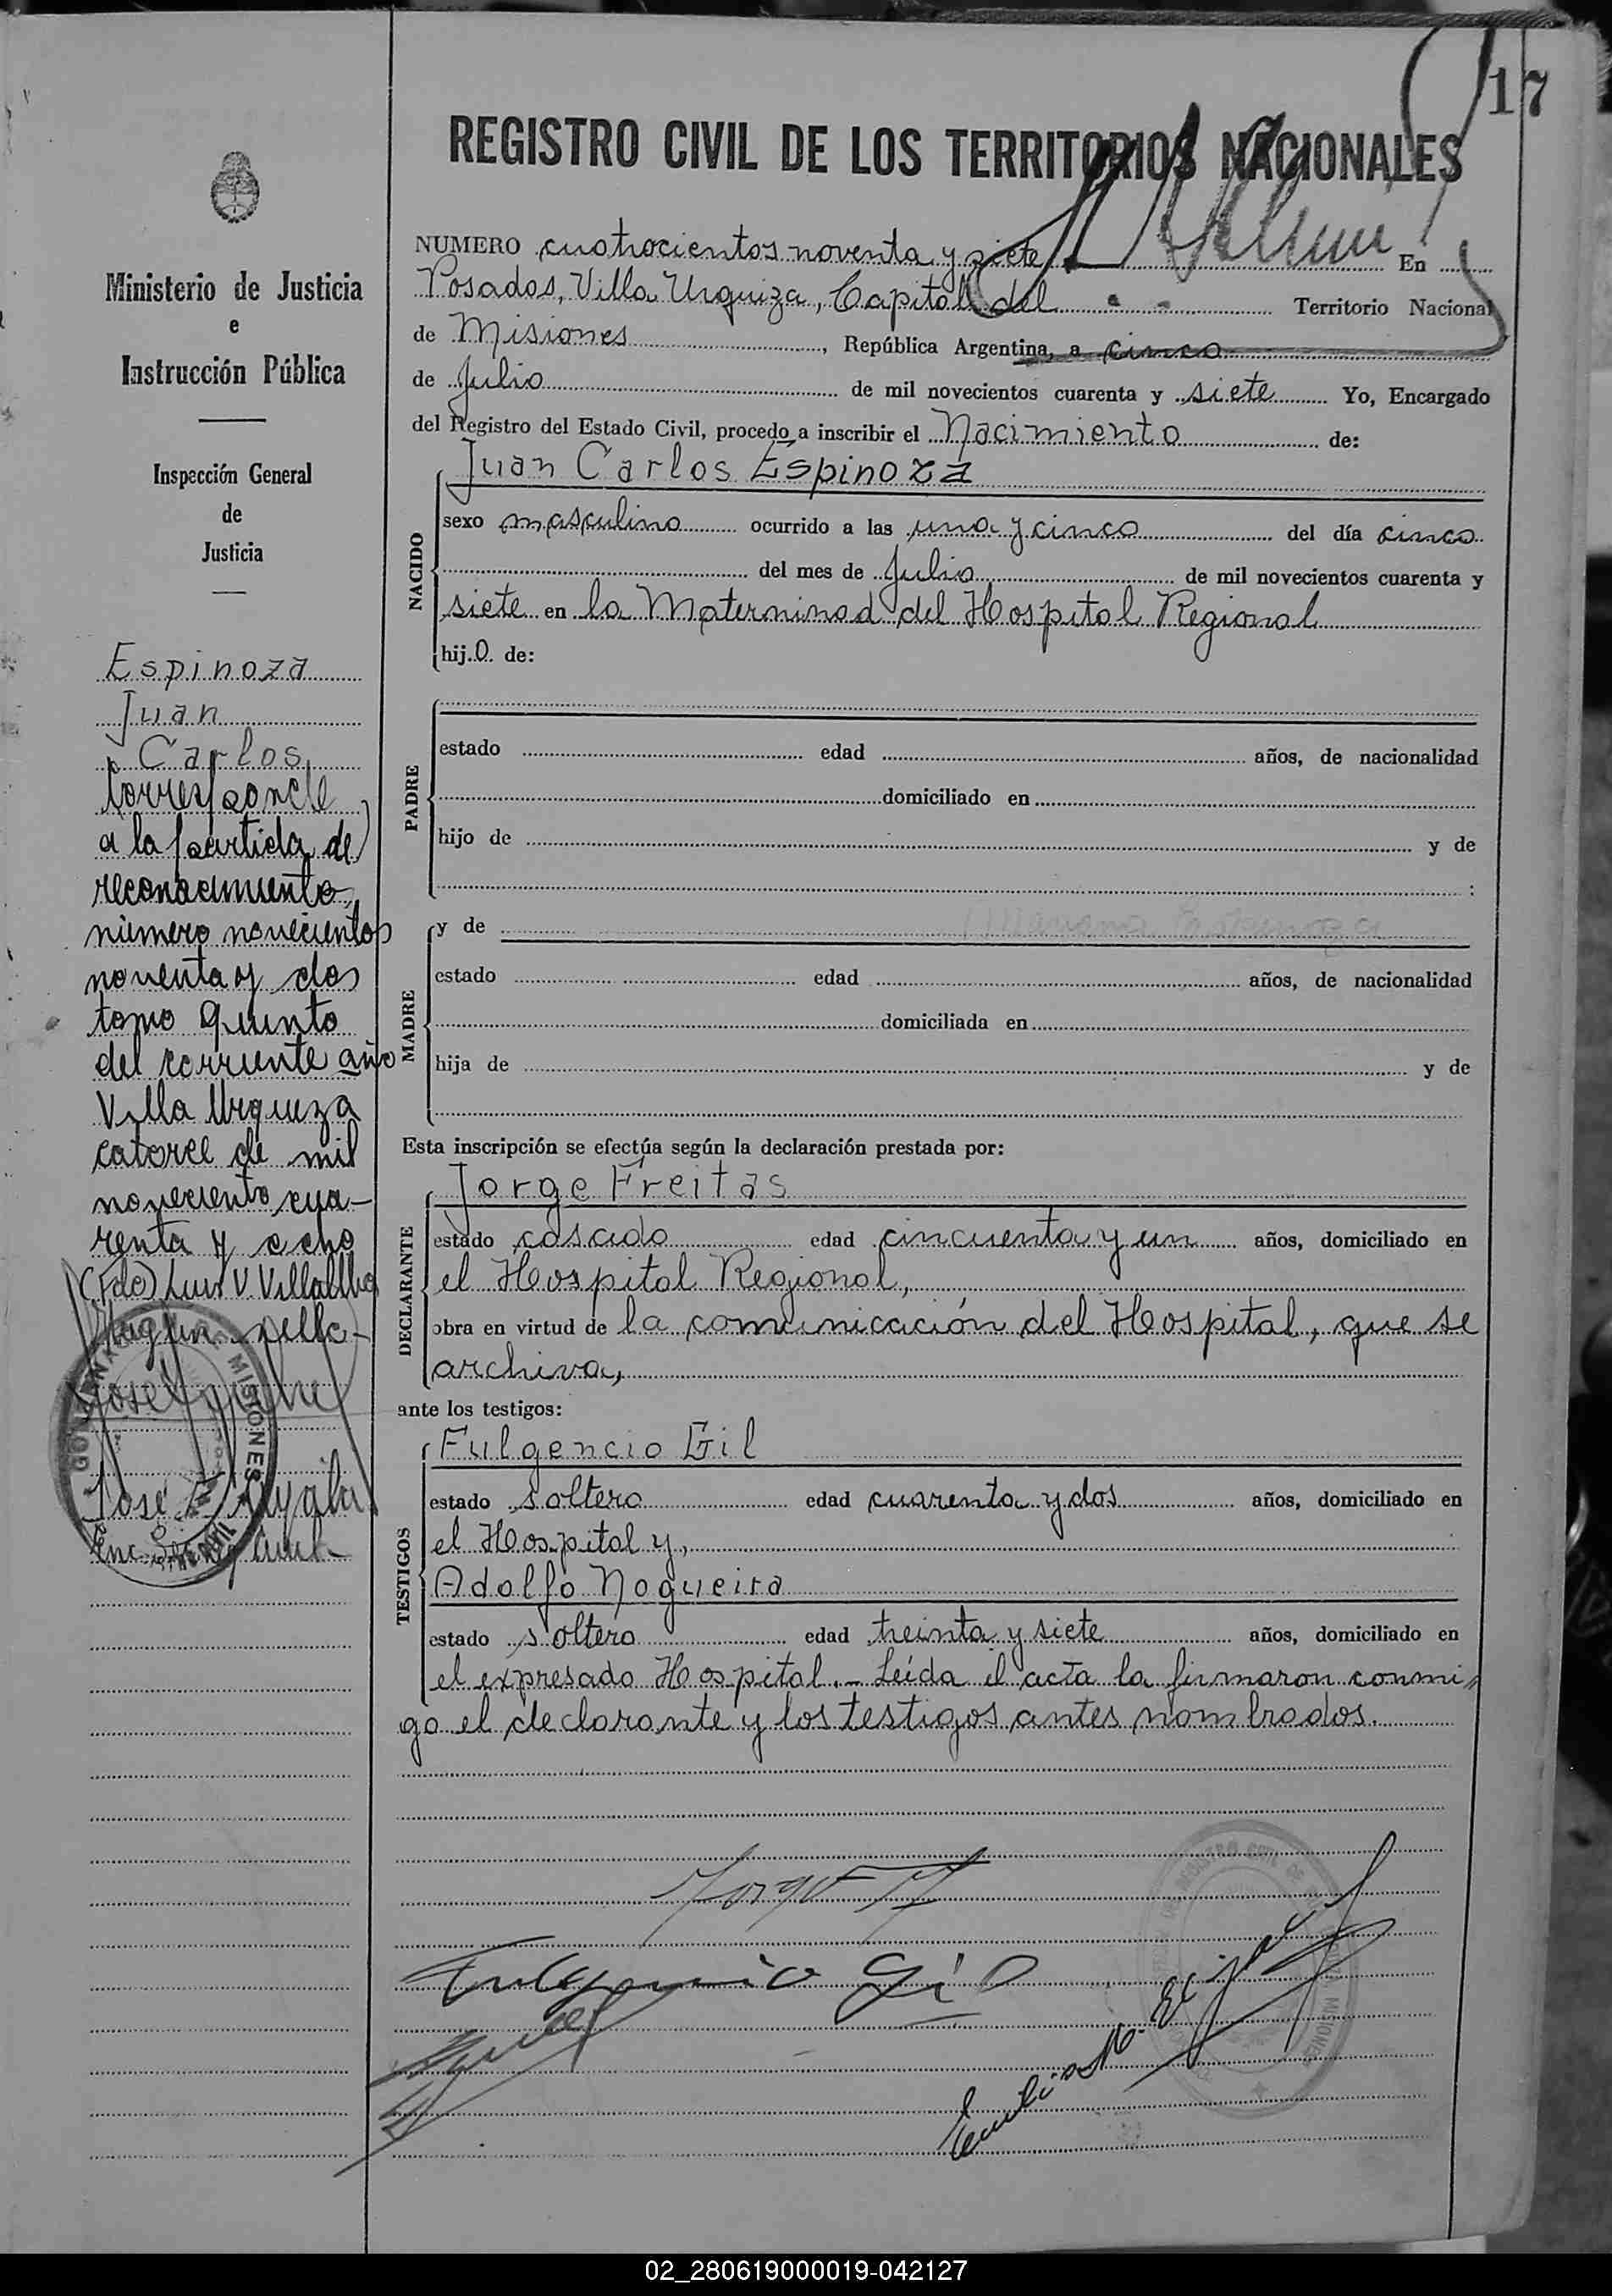 17
REGISTRO CIVIL DE LOS TERRITORIOS NACIONALES
Ministerio de Justicia
e
Instrucción Pública
Inspección General
de
Justicia
Espinoza
Juan
Carlos
Corresponde
a la partida de
reconocimiento
número novecientos
noventa y dos
tomo quinto
del corriente año
Villa Urquiza
catorce de mil
noveciento cua-
renta y ocho
(Fdo) Luis V. Villalba
José Ayala
NUMERO cuatrocientos noventa y siete En
Posadas, Villa Urquiza, Capital del Territorio Nacional
de Misiones, República Argentina, a cinco
de Julio de mil novecientos cuarenta y siete Yo, Encargado
del Registro del Estado Civil, procedo a inscribir el Nacimiento de:
Juan Carlos Espinoza
NACIDO
sexo masculino ocurrido a las una y cinco del día cinco
del mes de Julio de mil novecientos cuarenta y
siete en la Materninad del Hospital Regional
hijo de:
PADRE
estado edad años, de nacionalidad
domiciliado en
hijo de y de
:
MADRE
y de
estado edad años, de nacionalidad
domiciliada en
hija de y de
Esta inscripción se efectúa según la declaración prestada por:
DECLARANTE
Jorge Freitas
estado casado edad cincuenta y un años, domiciliado en
el Hospital Regional,
obra en virtud de la comunicación del Hospital, que se
archiva,
ante los testigos:
TESTIGOS
Fulgencio Gil
estado soltero edad cuarenta y dos años, domiciliado en
el Hospital y,
Adolfo Nogueira
estado soltero edad treinta y siete años, domiciliado en
el expresado Hospital.- Leída el acta la firmaron conmi-
go el declarante y los testigos antes nombrados.
Jorge F
Fulgencio Gil
02_280619000019-042127